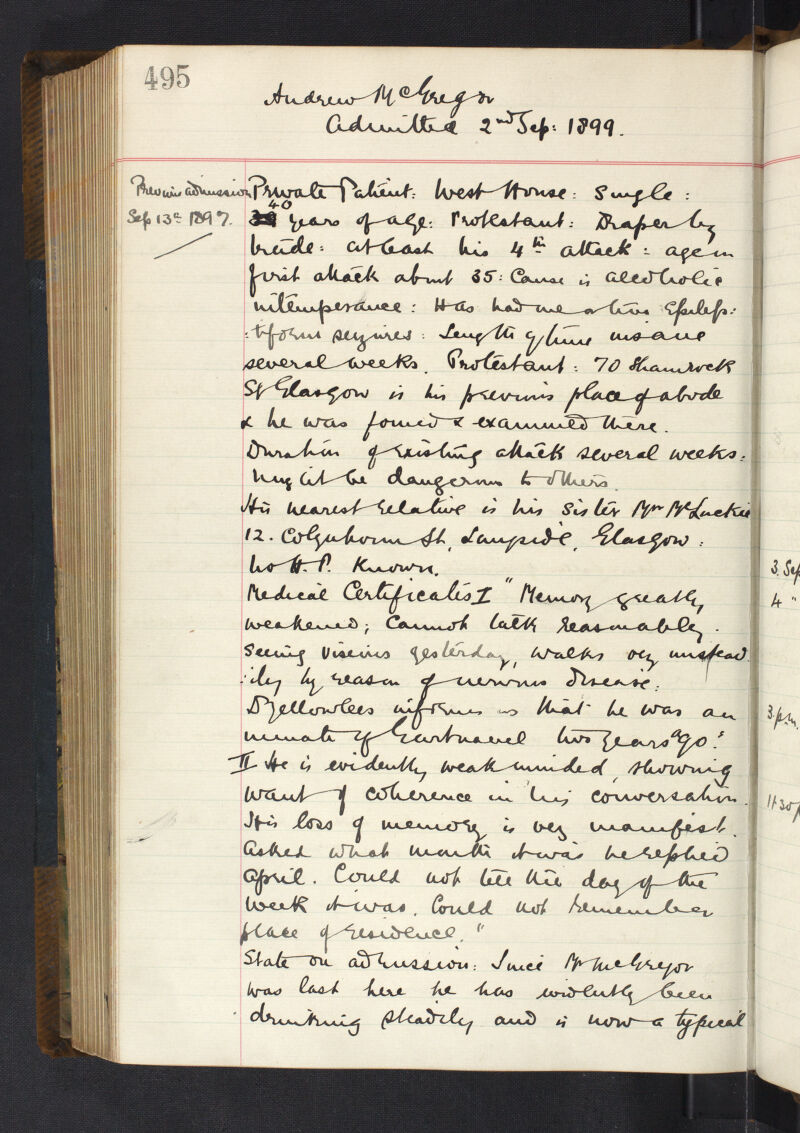 495
Andrew McGregor
Admitted 2nd Sep: 1899.
Previous admission
Sep 13th 1897.
Private Patient: West House: Single:
40 years of age: Protestant: Draper by
trade: at least his 4th attack: age on
first attack about 35: Cause is alcoholic
intemperance: Has had one or two Epilep:
:tiform seizures: Length of time insane
several weeks. Protestant: 70 Shamrock
St Glasgow is his previous place of abode
& he was found & examined there.
Duration of existing attack several weeks:
might be dangerous to others.
His nearest relative is his sister Mrs McLuckie
12. Colquhoun St, Langside, Glasgow:
no H.P. known.
Medical Certificates I " Memory greatly
weakened; Cannot talk reasonably.
Seeing visions yesterday, walks very unstead
:ily by reason of nervous disease:
Dr Yellowlees informs us that he was an
inmate of Gartnavel two years ago."
II He is evidently weak minded, showing
want of coherence in his conversation.
His loss of memory is very manifest.
Asked what month it was he replied
April. Could not tell the day of the
week it was. Could not remember
place of residence."
State on admission: Since Mr McGregor
was last here he has evidently been
drinking steadily and is now a typical
3. Sep
4 "
3 p.m.
11.30 p